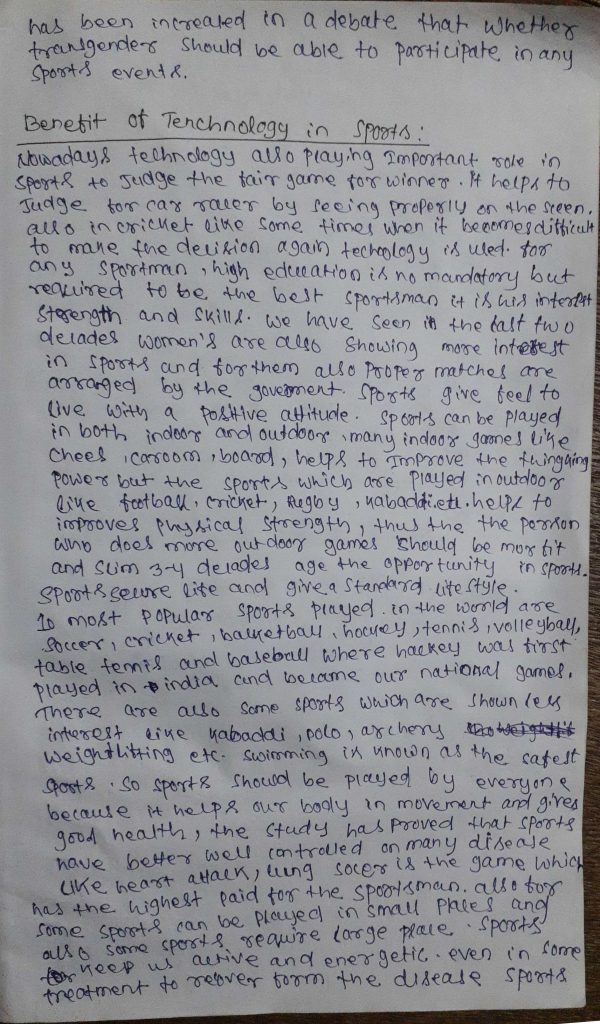 has been increated in a debate that whether
transgender should be able to participate in any
sports events.
Benefit of Tenchnology in sports:
Nowadays technology also playing Important role in
sports to Judge the fair game for winner. It helps to
Judge for car racer by seeing properly on the sreen.
also in cricket like some times when it becomes difficult
to make the decision again technology is used. for
any sportman, high education is no mandatory but
required to be the best sportsman it is his interest
strength and skills. we have seen in the last two
decades women's are also showing more interest
in sports and for them also proper matches are
arranged by the government. sports give feel to
live with a positive attitude. sports can be played
in both indoor and outdoor, many indoor games like
chees, caroom, board, helps to Improve the thingking
power but the sports which are played in outdoor
like football, cricket, Rugby, kabaddi.etc. helps to
improves physical strength, thus the the person
who does more outdoor games should be mor fit
and slim 3-4 decades age the opportunity in sports.
sports secure life and give a standard life style.
10 most popular sports played. in the world are
soccer, cricket, basketball, hockey, tennis, volleyball,
table tennis and baseball where hackey was first
played in india and became our national games.
There are also some sports which are shown less
interest like kabaddi, polo, archery
weightlifting etc. swimming is known as the safest
sports. so sports should be played by everyone
because it helps our body in movement and gives
good health, the study has proved that sports
have better well controlled on many disease
like heart attack, lung socer is the game which
has the highest paid for the sportsman. also for
some sports can be played in small places and
also some sports require large place. sports
keep us active and energetic. even in some
treatment to recover form the disease sports